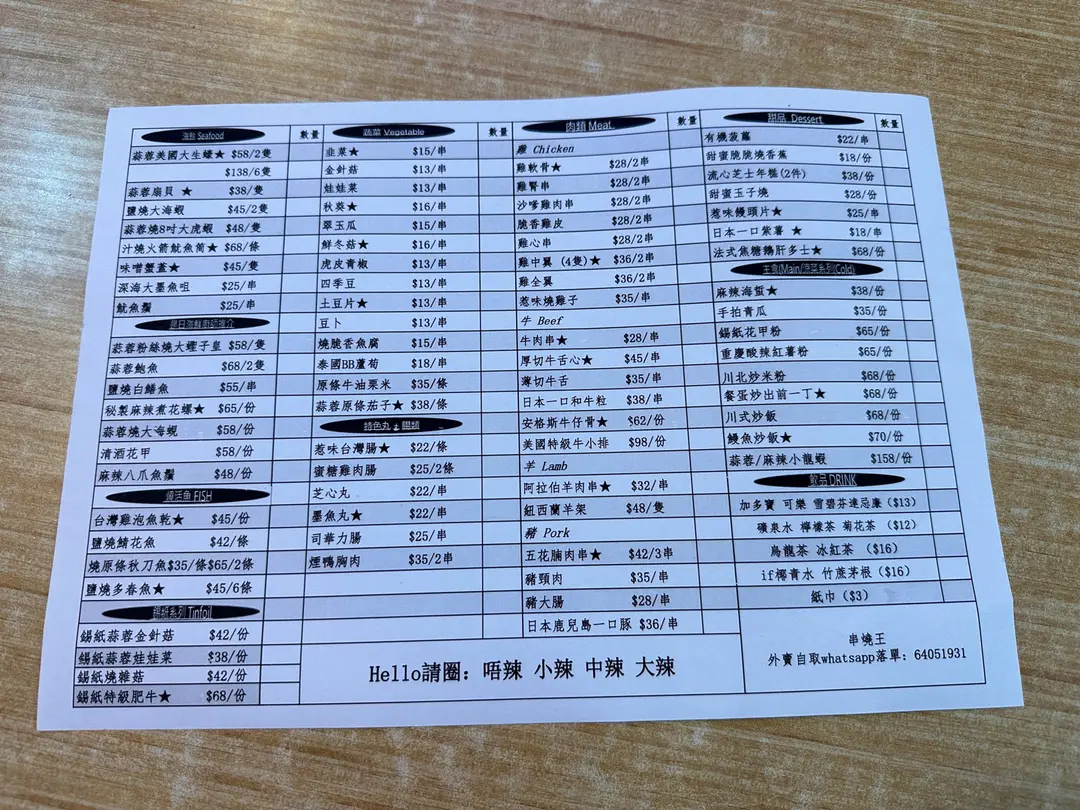 海鮮 Seafood 數量
蒜蓉美國大生蠔★ $58/2隻
$138/6隻
蒜蓉扇貝 ★ $38/隻
鹽燒大海蝦 $45/2隻
蒜蓉燒8吋大虎蝦 $48/隻
汁燒火箭魷魚筒★ $68/條
味噌蟹蓋★ $45/隻
深海大墨魚咀 $25/串
魷魚鬚 $25/串
是日海鮮廚師推介
蒜蓉粉絲燒大蟶子皇 $58/隻
蒜蓉鮑魚 $68/2隻
鹽燒白鱔魚 $55/串
秘製麻辣煮花螺★ $65/份
蒜蓉燒大海蜆 $58/份
清酒花甲 $58/份
麻辣八爪魚鬚 $48/份
FISH
台灣雞泡魚乾★ $45/份
鹽燒鯖花魚 $42/條
燒原條秋刀魚$35/條$65/2條
鹽燒多春魚★ $45/6條
錫紙系列 Tinfoil
錫紙蒜蓉金針菇 $42/份
錫紙蒜蓉娃娃菜 $38/份
錫紙燒雜菇 $42/份
錫紙特級肥牛★ $68/份
蔬菜 Vegetable 數量
韭菜★ $15/串
金針菇 $13/串
娃娃菜 $13/串
秋葵★ $16/串
翠玉瓜 $15/串
鮮冬菇★ $16/串
虎皮青椒 $13/串
四季豆 $13/串
土豆片★ $13/串
豆卜 $13/串
燒脆香魚腐 $15/串
泰國BB蘆筍 $18/串
原條牛油粟米 $35/條
蒜蓉原條茄子★ $38/條
特色丸 腸類
惹味台灣腸★ $22/條
蜜糖雞肉腸 $25/2條
芝心丸 $22/串
墨魚丸★ $22/串
司華力腸 $25/串
煙鴨胸肉 $35/2串
肉類 Meat 數量
雞 Chicken
雞軟骨★ $28/2串
雞腎串 $28/2串
沙嗲雞肉串 $28/2串
脆香雞皮 $28/2串
雞心串 $28/2串
雞中翼 (4隻)★ $36/2串
雞全翼 $36/2串
惹味燒雞子 $35/串
牛 Beef
牛肉串★ $28/串
厚切牛舌心★ $45/串
薄切牛舌 $35/串
日本一口和牛粒 $38/串
安格斯牛仔骨★ $62/份
美國特級牛小排 $98/份
羊 Lamb
阿拉伯羊肉串★ $32/串
紐西蘭羊架 $48/隻
豬 Pork
五花腩肉串★ $42/3串
豬頸肉 $35/串
豬大腸 $28/串
日本鹿兒島一口豚 $36/串
甜品 Dessert 數量
有機菠蘿 $22/串
甜蜜脆脆燒香蕉 $18/份
流心芝士年糕(2件) $38/份
甜蜜玉子燒 $28/份
惹味饅頭片★ $25/串
日本一口紫薯 ★ $18/串
法式焦糖鵝肝多士★ $68/份
主食(Main/涼菜系列(Cold)
麻辣海蜇★ $38/份
手拍青瓜 $35/份
錫紙花甲粉 $65/份
重慶酸辣紅薯粉 $65/份
川北炒米粉 $68/份
餐蛋炒出前一丁★ $68/份
川式炒飯 $68/份
鰻魚炒飯★ $70/份
蒜蓉/麻辣小龍蝦 $158/份
飲品 DRINK
加多寶 可樂 雪碧芬達忌廉 ($13)
礦泉水 檸檬茶 菊花茶 ($12)
烏龍茶 冰紅茶 ($16)
if椰青水 竹蔗茅根 ($16)
紙巾 ($3)
Hello請圈: 唔辣 小辣 中辣 大辣
串燒王
外賣自取whatsapp落單: 64051931